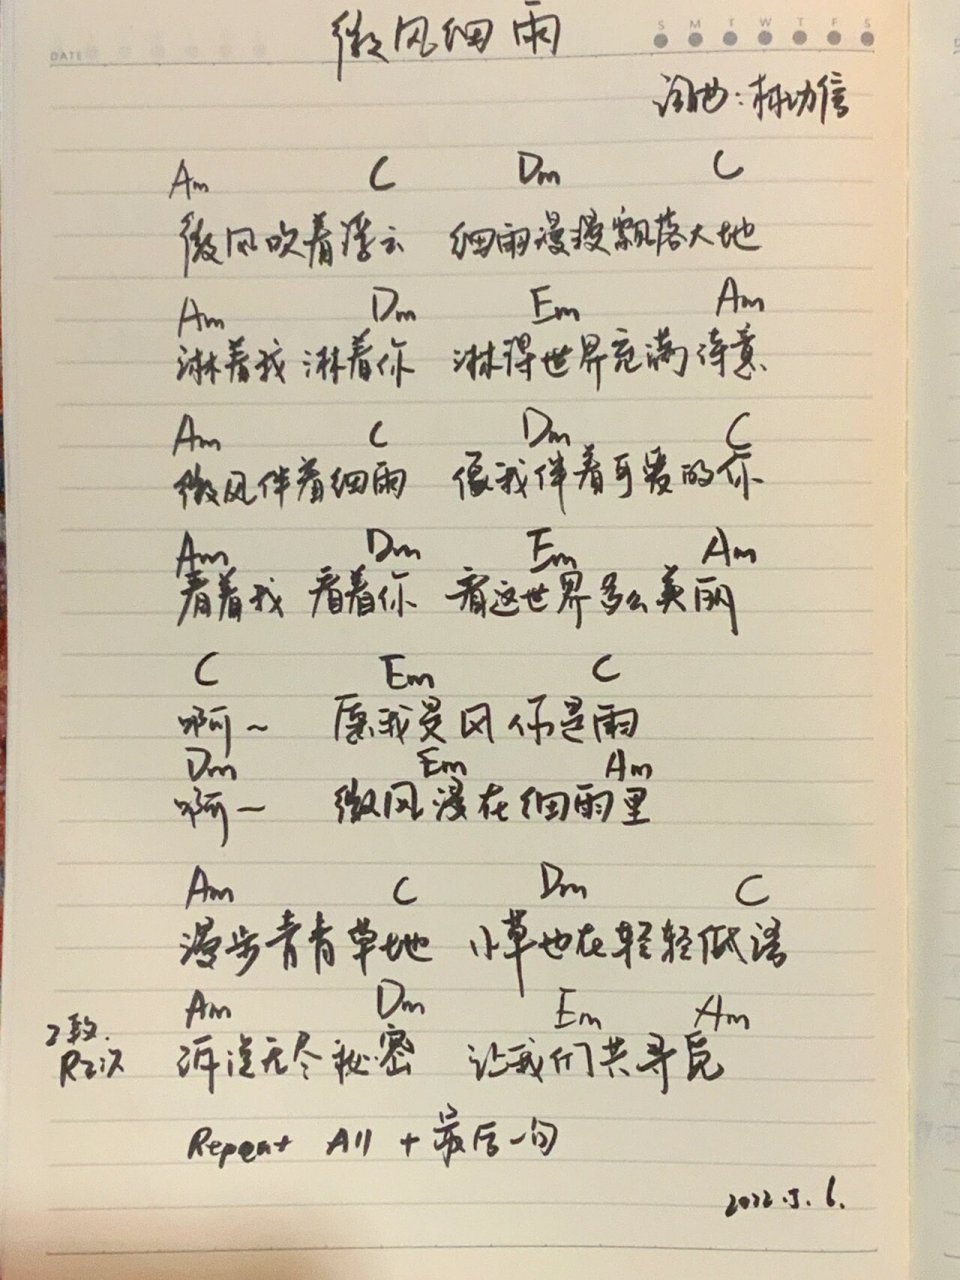 微风细雨
DATE
S M T W T F S
词曲：林功信
Am C Dm C
微风吹着浮云 细雨漫漫飘落大地
Am Dm Em Am
淋着我 淋着你 淋得世界充满诗意
Am C Dm C
微风伴着细雨 像我伴着可爱的你
Am Dm Em Am
看着我 看着你 看这世界多么美丽
C Em C
啊～ 愿我是风 你是雨
Dm Em Am
啊～ 微风漫在细雨里
Am C Dm C
漫步青青草地 小草也在轻轻低语
Am Dm Em Am
诉说无尽秘密 让我们共寻觅
2段.
R2次
Repeat All + 最后一句
2022.5.6.